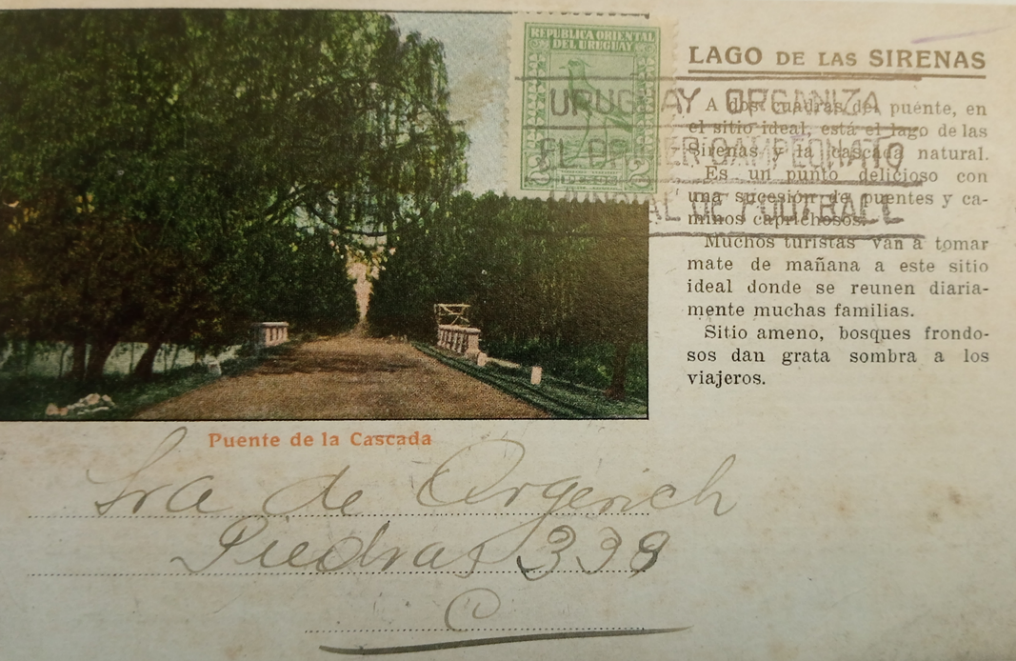 REPUBLICA ORIENTAL
DEL URUGUAY
2 2
URUGUAY ORGANIZA
EL PRIMER CAMPEONATO
MUNDIAL DE FOOTBALL
LAGO DE LAS SIRENAS
A dos cuadras del puente, en
el sitio ideal, está el lago de las
Sirenas y la cascada natural.
Es un punto delicioso con
una sucesión de puentes y ca-
minos caprichosos.
Muchos turistas van a tomar
mate de mañana a este sitio
ideal donde se reunen diaria-
mente muchas familias.
Sitio ameno, bosques frondo-
sos dan grata sombra a los
viajeros.
Puente de la Cascada
Sra de Orgerich
Piedras 398
C